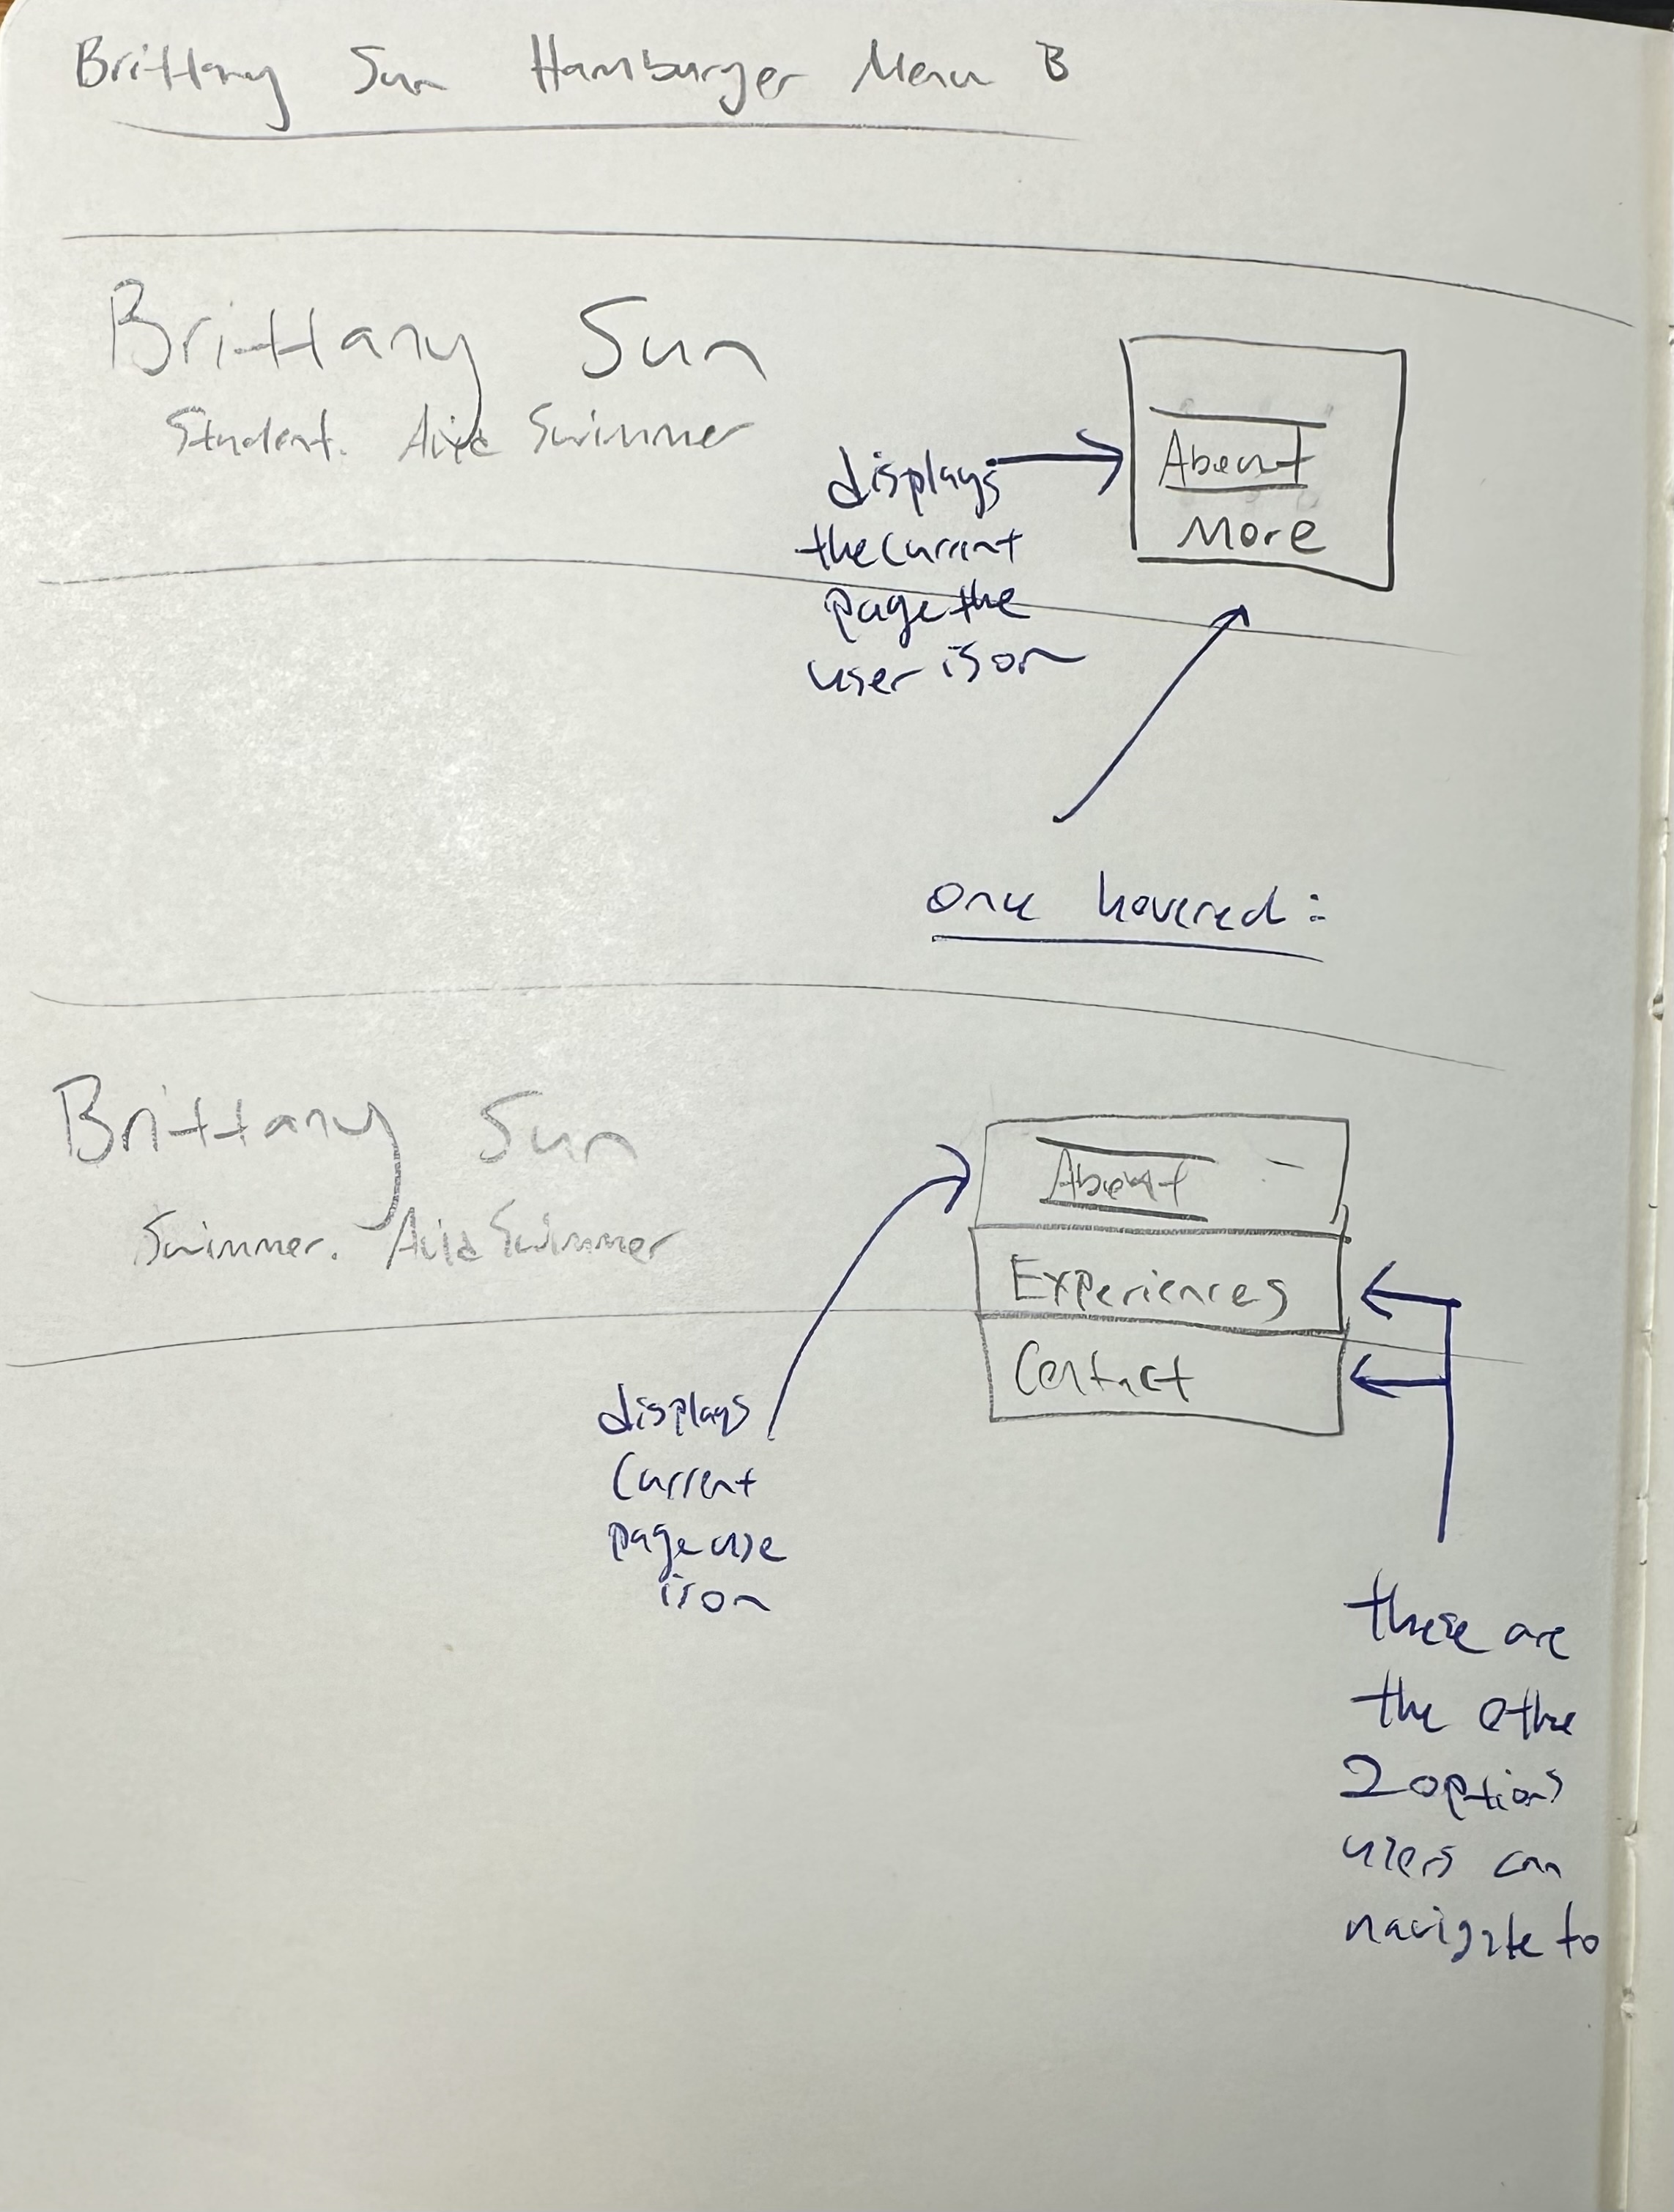 Brittany Sun Hamburger Menu B
Brittany Sun
Student. Avid Swimmer
About
More
displays
the current
page the
user is on
once hovered:
Brittany Sun
Swimmer. Avid Swimmer
About
Experiences
Contact
displays
current
page use
is on
these are
the othe
2 options
users can
navigate to